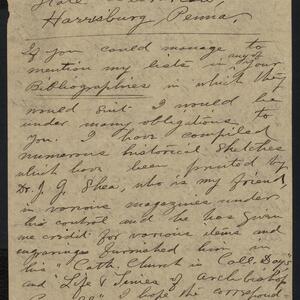 State
Harrisburg, Penna,
If you could manage to
mention my lists in any of your
Bibliographies in which they
would suit I would be
under many obligations to
you. I have compiled
numerous historical sketches
which have been printed by
Dr. J. G. Shea, who is my friend,
in various magazines under
his control and he has given
me credit for various items and
engravings furnished him in
his "Cath Church in Col. Days"
and "Life & Times of Archbishop
I hope the